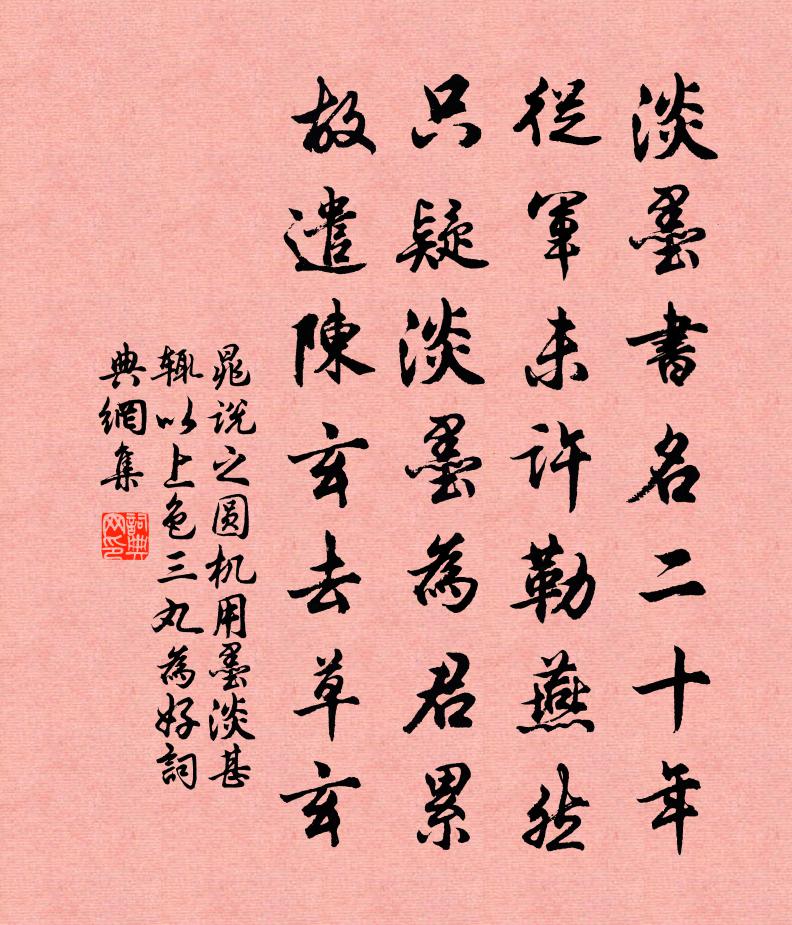 淡墨書名二十年
從軍未許勒燕然
只疑淡墨為君累
故遣陳玄去草玄
晁說之圓机用墨淡甚
輒以上色三丸為好詞
典網集
詞典网印